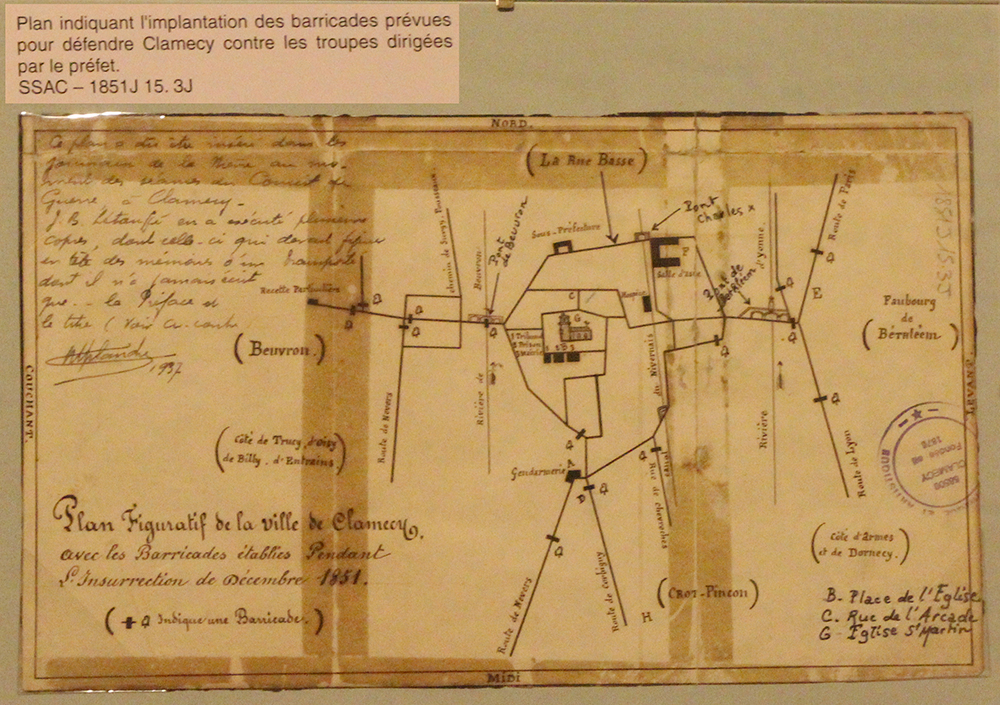 Plan indiquant l'implantation des barricades prévues
pour défendre Clamecy contre les troupes dirigées
par le préfet.
SSAC – 1851J 15. 3J
NORD.
Ce plan a dû être inséré dans les
journaux de la Nièvre au mo-
ment des séances du Conseil de
Guerre à Clamecy.
J. B. en a exécuté plusieurs
copies, dont celle-ci qui devait figurer
en tête des mémoires d'un transporté
dont il n'a jamais écrit
que la Préface et
le titre (Voir ci-contre
1937
(La Rue Basse)
Pont
Charles X
Route de Paris
Sous-Préfecture
Pont
de Beuvron
chemin de Surgy
Beuvron
Salle d'asile
P
Hospice
d'Yonne
E
Faubourg
de
(Béthléem)
Recette Particulière
C
G
Tribunal
Prison
Mairie
B
(Beuvron)
COUCHANT.
LEVANT.
du Nivernais
Rivière de
Rivière
Route de Nevers
Route de Lyon
(Côté de Trucy, d'Oisy
de Billy, d'Entrains)
Gendarmerie
Canal
Plan Figuratif de la ville de Clamecy.
avec les Barricades établies Pendant
L'Insurrection de Décembre 1851.
(Indique une Barricade.)
Route de Nevers
Route de Corbigny
H
(Crot-Pinçon)
(Côté d'Armes
et de Dornecy.)
B. Place de l'Église
C. Rue de l'Arcade
G - Église St Martin
58500
CLAMECY
Fondée en
1876
MIDI